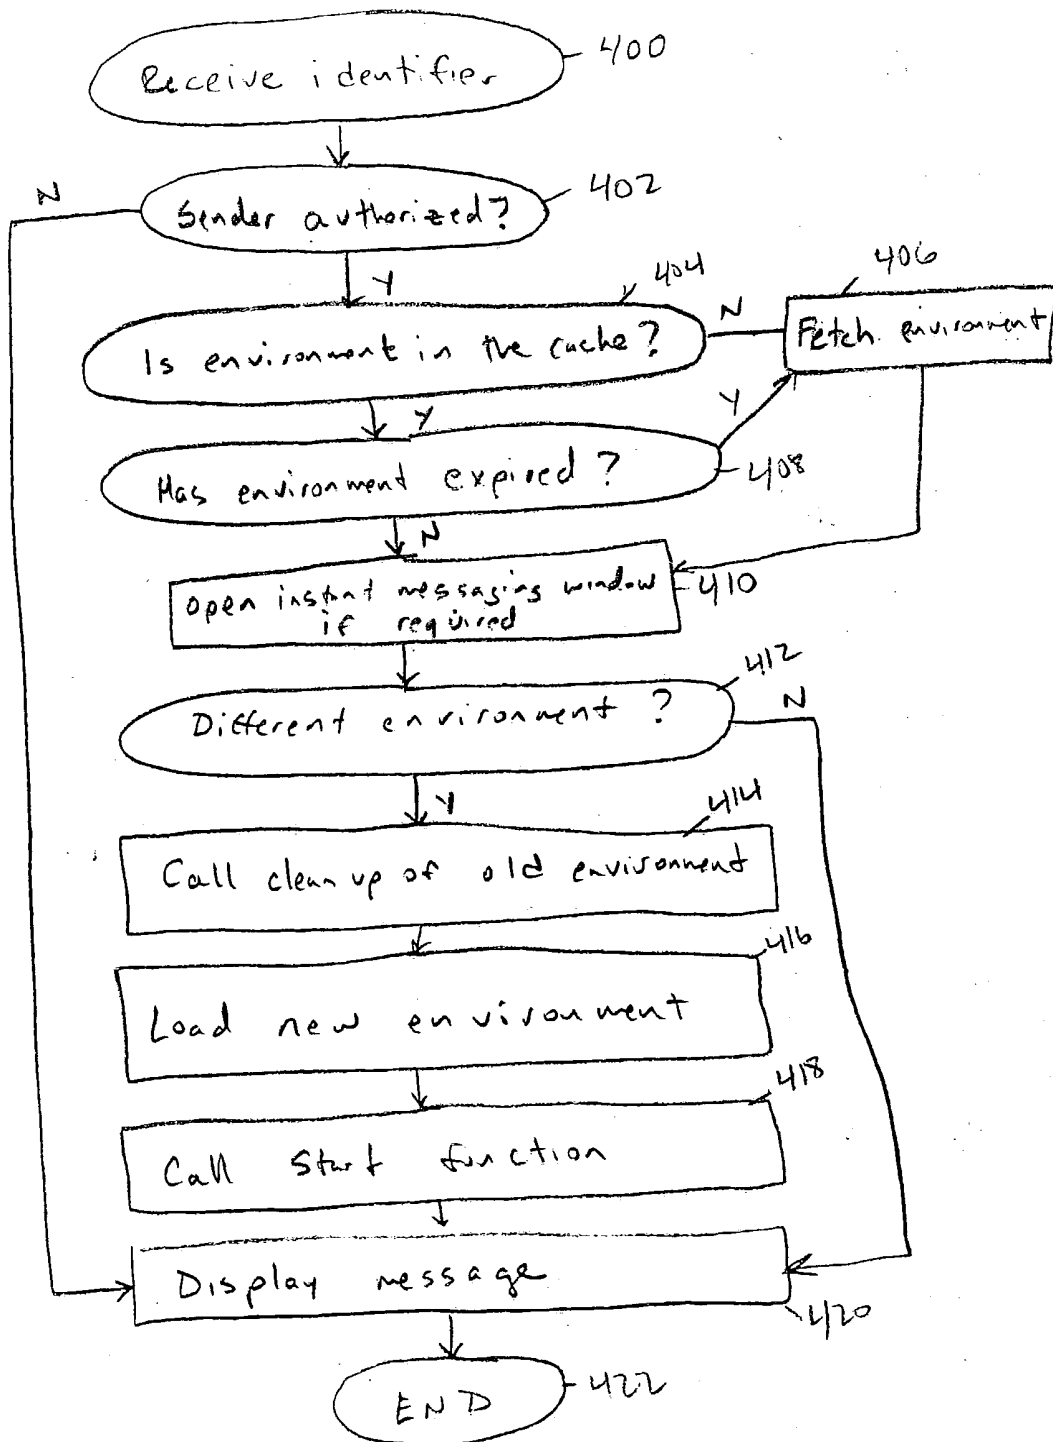 Receive identifier
400
Sender authorized?
402
N
Y
Is environment in the cache?
404
N
Fetch environment
406
Y
Y
Has environment expired?
408
N
Open instant messaging window
if required
410
Different environment?
412
N
Y
Call clean up of old environment
414
Load new environment
416
Call start function
418
Display message
420
END
422